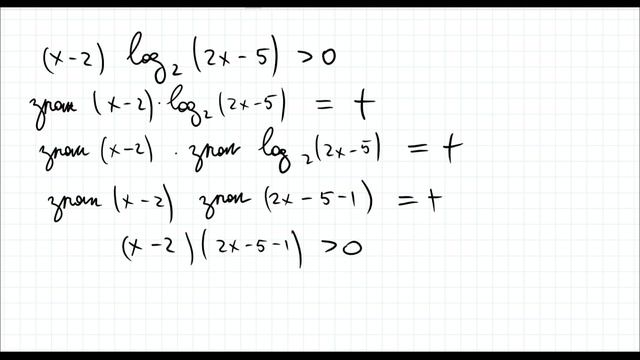 (x-2) log₂(2x-5) >0
знак (x-2)·log₂(2x-5) = +
знак (x-2) · знак log₂(2x-5) = +
знак (x-2) знак (2x-5-1) = +
(x-2)(2x-5-1) >0